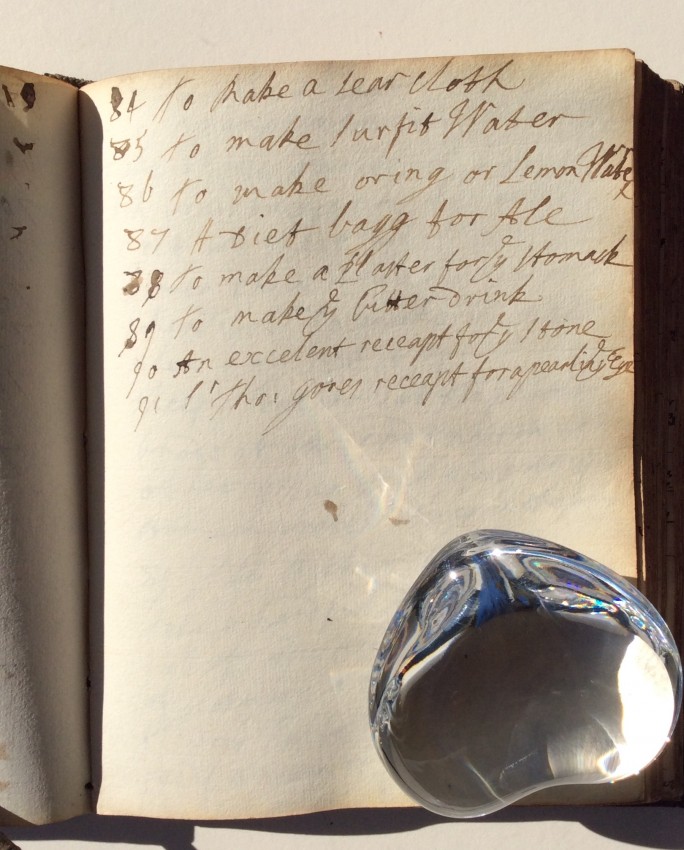 84 to make a sear cloth
85 to make surfit Water
86 to make oring or Lemon Water
87 A Diet bagg for Ale
88 to make a Plaster for ye stomack
89 to make ye bitter Drink
90 An excelent receapt for ye stone
91 Sr Tho: gores receapt for a pearl in ye Eye